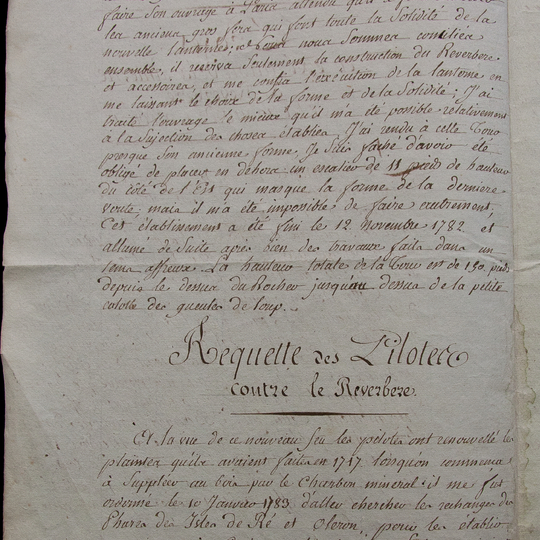 faire son ouvrage à Paris attendu qu'il
les anciens gros fers qui font toute la Solidité de la
nouvelle lanterne; et nous nous sommes conciliés
ensemble, il reserva seulement la construction du Reverbere
et accessoires, et me confia l'exécution de la lanterne en
me laissant le choix de la forme et de la Solidité; J'ai
traité l'ouvrage le mieux qu'il m'a été possible relativement
à la Sujection des choses établies J'ai rendu à cette Tour
presque Son ancienne forme, Je Suis faché d'avoir été
obligé de placer en déhors un escalier de 11 pieds de hauteur
du côté de l'Est qui masque la forme de la derniere
voute, mais il m'a été impossible de faire autrement.
Cet établissement a été fini le 12 Novembre 1782 et
allumé de Suite après bien des travaux faits dans un
tems affreux. La hauteur totale de la Tour est de 150 pieds
depuis le dessus du Rocher jusqu'au dessus de la petite
calotte des gueules de loup.
Requette des Pilotes
contre le Reverbere
A la vue de ce nouveau feu les pilotes ont renouvellé les
plaintes qu'ils avaient faites en 1717 lorsqu'on commença
à Suppléer au bois par le Charbon mineral: il me fut
ordonné le 10 Janvier 1783 d'aller chercher les rechanges des
Phares des Isles de Ré et Oleron, pour les établir